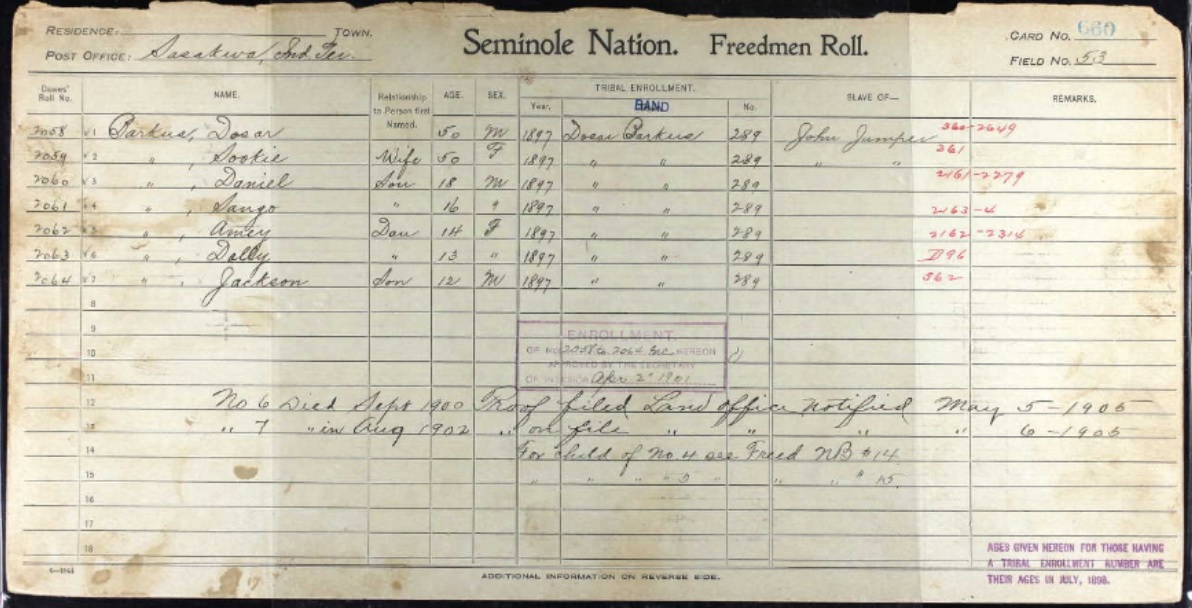 RESIDENCE: TOWN. Seminole Nation. Freedmen Roll. CARD No. 660
POST OFFICE: Sasakwa, Ind. Ter. FIELD No. 53
Dawes' Roll No. NAME. Relationship to Person first Named. AGE. SEX. TRIBAL ENROLLMENT. Year. BAND No. SLAVE OF— REMARKS.
2058 √1 Barkus, Dosar 50 M 1897 Dosar Barkus 289 John Jumper 360-2649
2059 √2 " , Sookie Wife 50 F 1897 " " 289 " " 361
2060 √3 " , Daniel Son 18 M 1897 " " 289 2161-2279
2061 √4 " , Sango " 16 " 1897 " " 289 2163-4
2062 √5 " , Amey Dau 14 F 1897 " " 289 2162-2314
2063 √6 " , Dolly " 13 " 1897 " " 289 D96
2064 √7 " , Jackson Son 12 M 1897 " " 289 362
8
9
10
11
ENROLLMENT
OF NOS 2058 to 2064 Inc HEREON
APPROVED BY THE SECRETARY
OF INTERIOR Apr 2" 1901
12 No 6 Died Sept 1900 Proof filed Land office notified May 5-1905
13 " 7 " in Aug 1902 " on file " " " " 6-1905
14 For child of No. 4 see Freed NB #14
15 " " " " 5 " " " " 15
16
17
18
AGES GIVEN HEREON FOR THOSE HAVING
A TRIBAL ENROLLMENT NUMBER ARE
THEIR AGES IN JULY, 1898.
ADDITIONAL INFORMATION ON REVERSE SIDE.